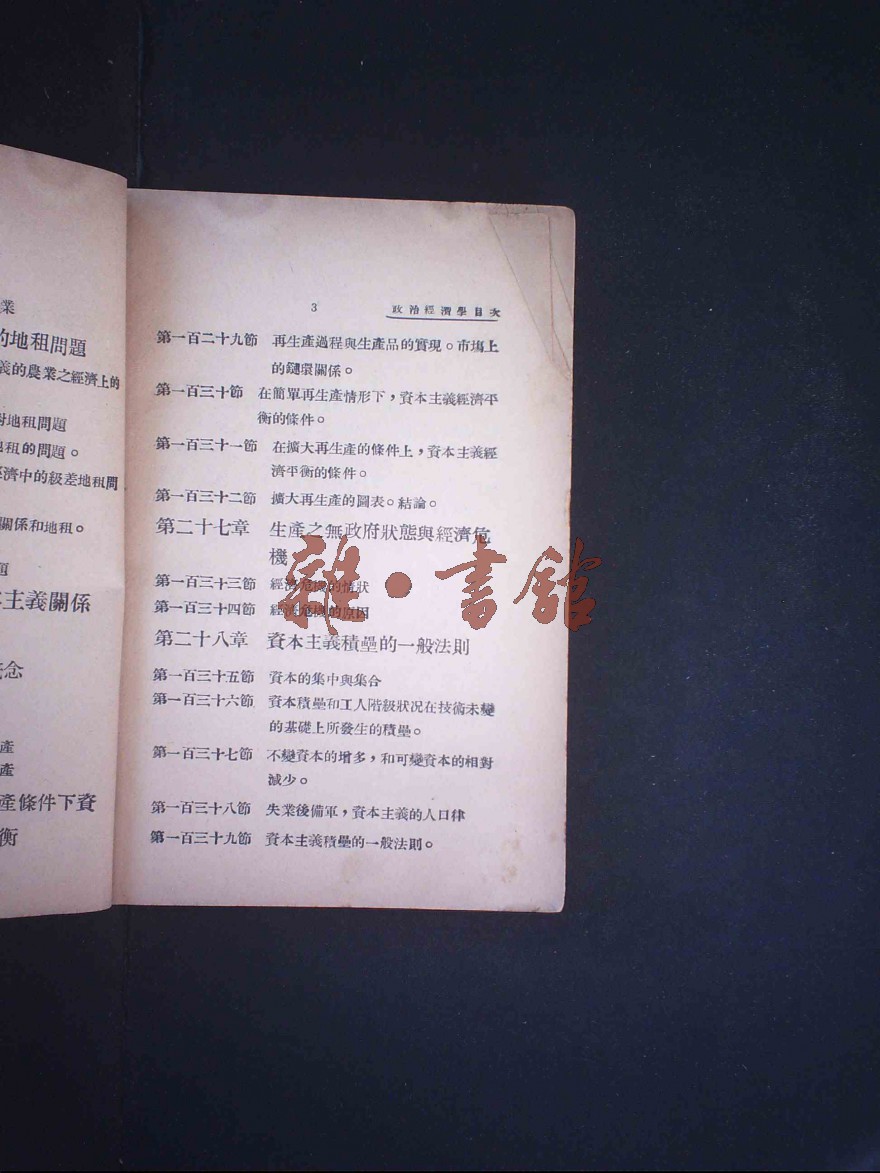 業
的地租問題
義的農業之經濟上的
地租問題
地租的問題。
經濟中的級差地租問
關係和地租。
題
本主義關係
念
產
產
產條件下資
衡
3 政治經濟學目次
第一百二十九節 再生產過程與生產品的實現。市塲上
的鏈環關係。
第一百三十節 在簡單再生產情形下，資本主義經濟平
衡的條件。
第一百三十一節 在擴大再生產的條件上，資本主義經
濟平衡的條件。
第一百三十二節 擴大再生產的圖表。結論。
第二十七章 生產之無政府狀態與經濟危
機
第一百三十三節 經濟危機的情狀
第一百三十四節 經濟危機的原因
第二十八章 資本主義積壘的一般法則
第一百三十五節 資本的集中與集合
第一百三十六節 資本積壘和工人階級狀况在技術未變
的基礎上所發生的積壘。
第一百三十七節 不變資本的增多，和可變資本的相對
減少。
第一百三十八節 失業後備軍，資本主義的人口律
第一百三十九節 資本主義積壘的一般法則。
雜·書館